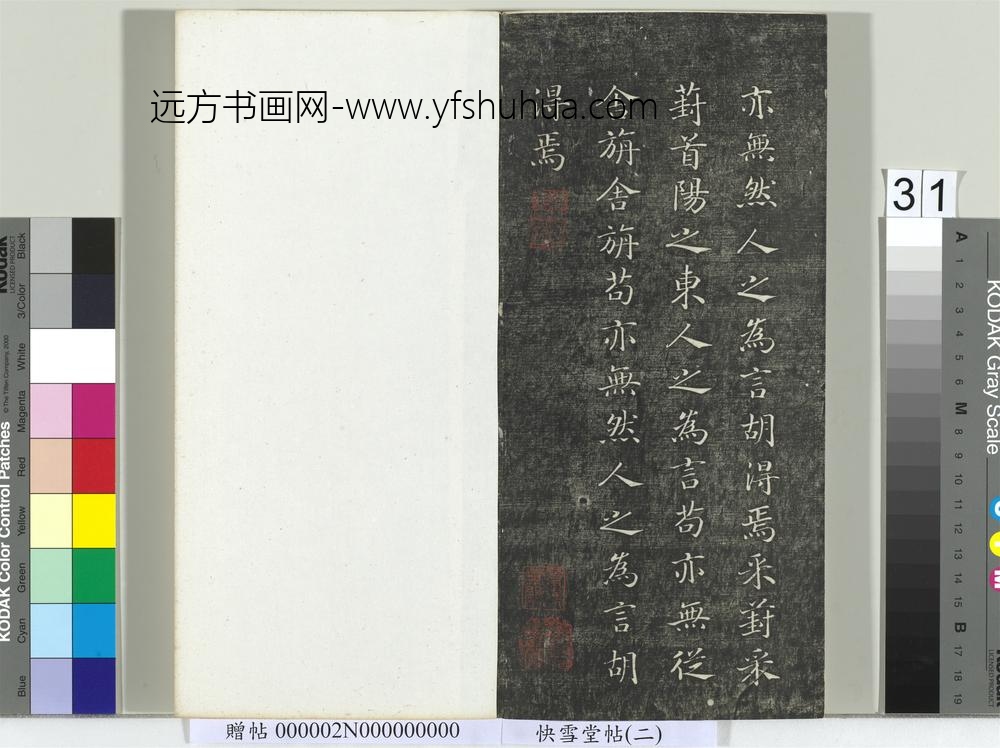 亦無然人之為言胡得焉采葑采
葑首陽之東人之為言苟亦無從
舍旃舍旃苟亦無然人之為言胡
得焉
远方书画网-www.yfshuhua.com
31
贈帖 000002N000000000
快雪堂帖(二)
KODAK Color Control Patches
© The Tiffen Company, 2000
Kodak
LICENSED PRODUCT
Black
3/Color
White
Magenta
Red
Yellow
Green
Cyan
Blue
KODAK Gray Scale
A 1 2 3 4 5 6 M 8 9 10 11 12 13 14 15 B 17 18 19
C
Y
M